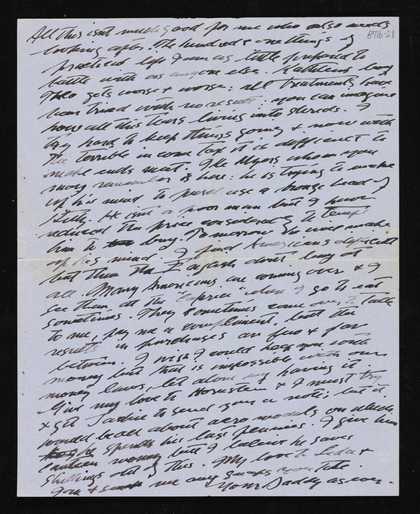 All this isn't much good for me who also needs
looking after. The hundred & one things of
practical life I am as little prepared to
battle with as anyone else. Kathleen's leg
also gets worse & worse: all treatments have
been tried with no result: you can imagine
how all this tears living into shreds. I
try hard to keep things going & now with
the terrible income tax it is difficult to
make ends meet. The Myers whom you
may remember is here: he is trying to make
up his mind to purchase a bronze head of
He isn't a poor man but I have
reduced the price considerably to tempt
him to buy. Tomorrow she will make
up his mind. I find Americans difficult
but then the English don't buy at
all. Many Americans are coming over & I
see them at the when I go to eat
sometimes. They sometimes come over, talk
to me, pay me a compliment, but the
results in purchases are few & far
between. I wish I could help you with
money but that is impossible with our
money laws, let alone my having it.
Give my love to & I must try
& get Jackie to send you a note; but it
would be all about aero models on which
he spends his last pennies. I give him
money but I believe he saves
shillings out of this. My love to Leda &
you & me any too.
Your Daddy as ever.